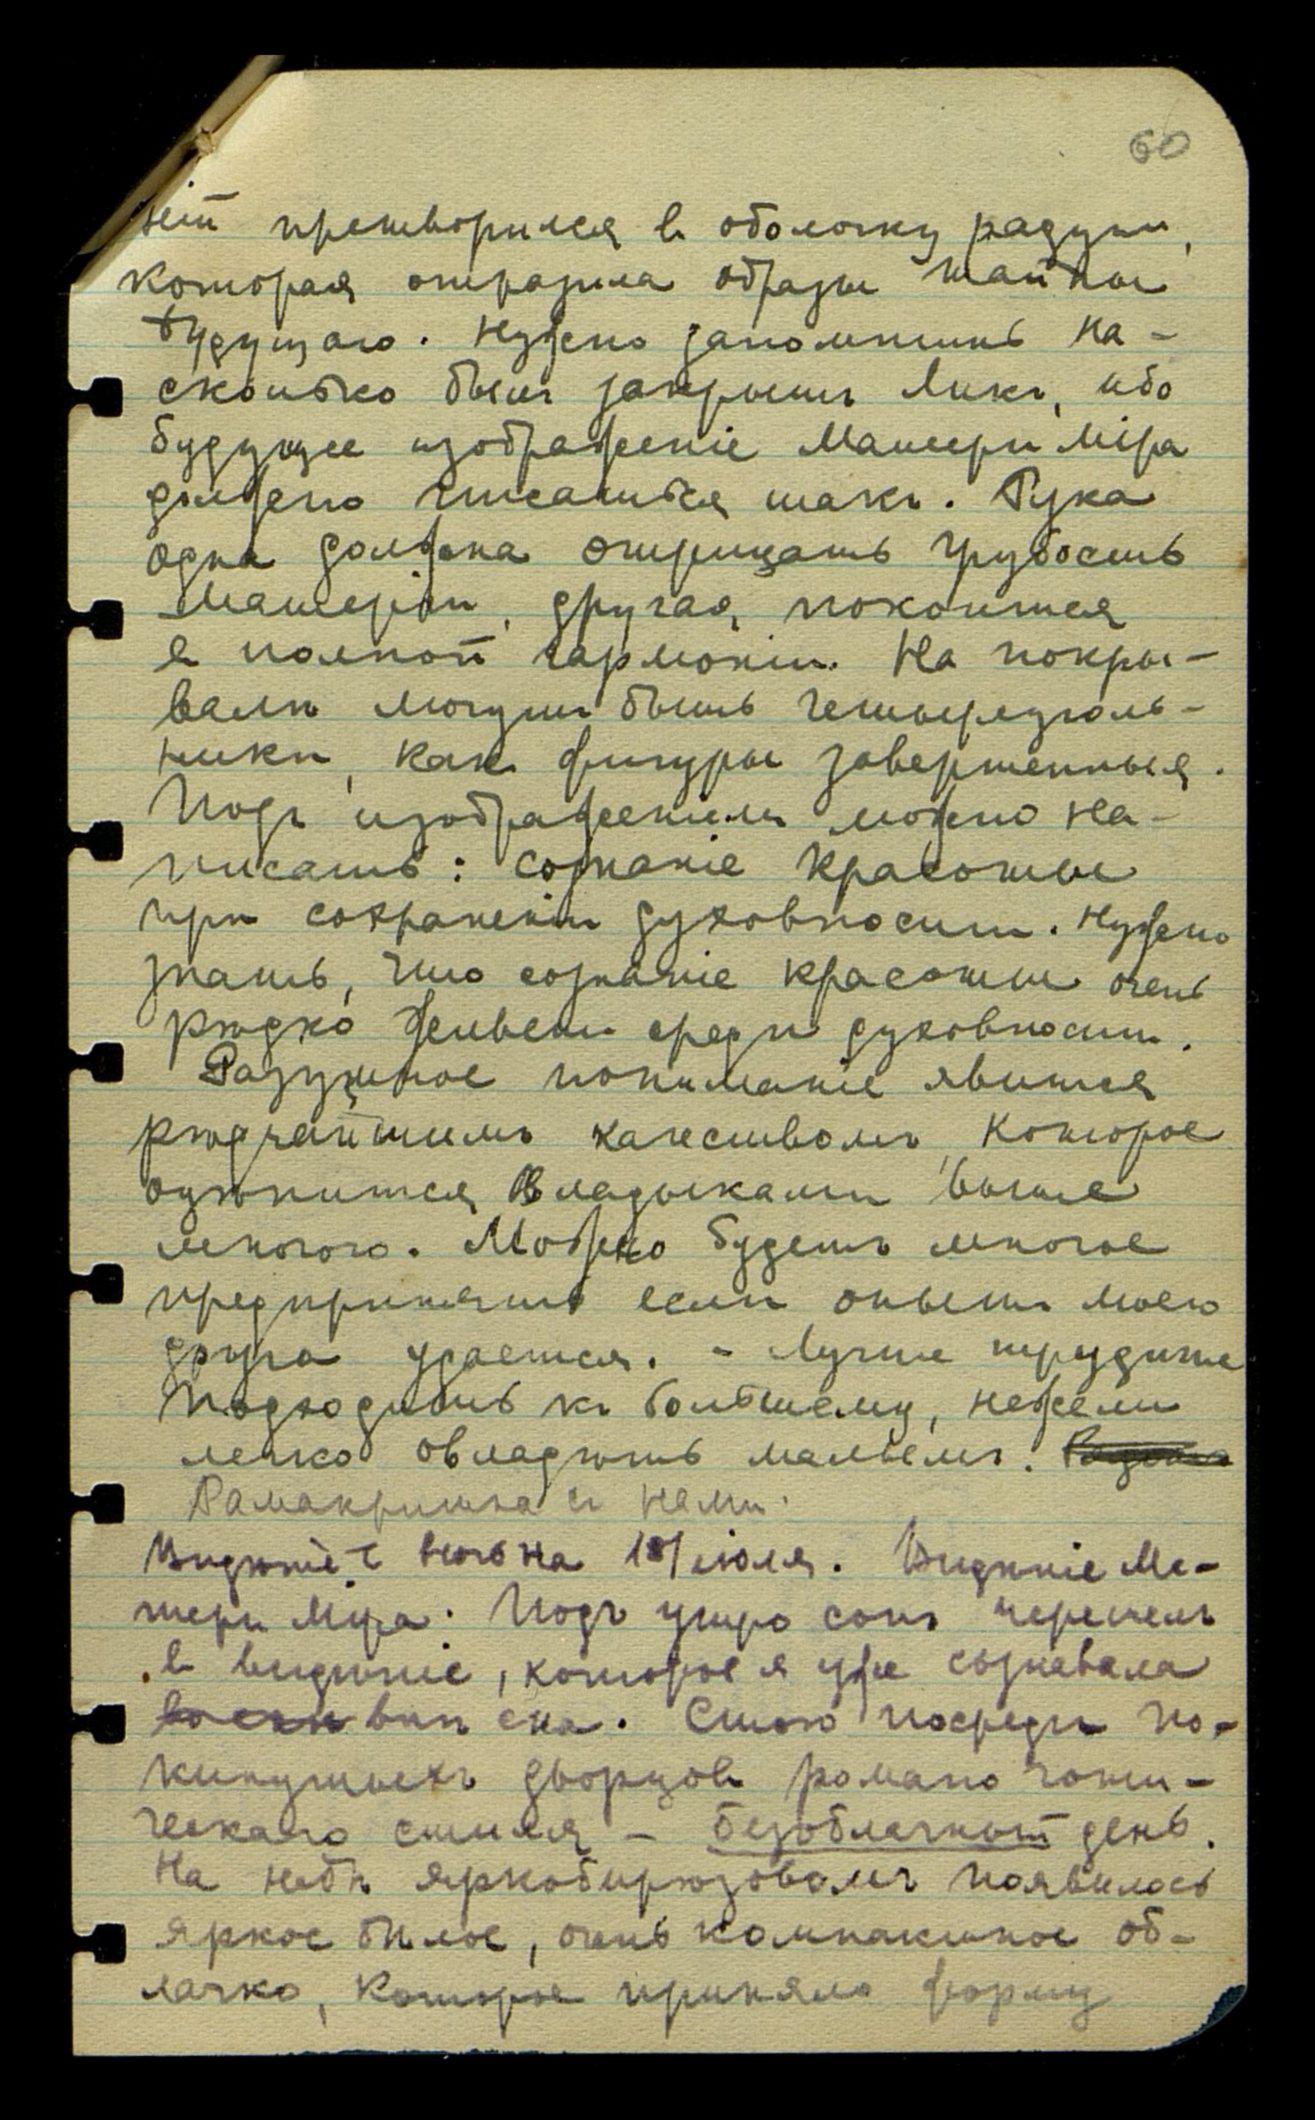 60
ній претворился в оболочку радуги,
которая отразила образы тайны
будущаго. Нужно запомнить на-
сколько был закрытъ Ликъ, ибо
будущее изображеніе Матери Міра
должно писаться такъ. Рука
одна должна отрицать грубость
матеріи, другая покоится
в полной гармоніи. На покры-
валѣ могутъ быть четыреуголь-
ники, какъ фигуры завершенныя.
Подъ изображеніем можно на-
писать: сознаніе красоты
при сохраненіи духовности. Нужно
знать, что сознаніе красоты очень
рѣдко живетъ среди духовности.
Разумное пониманіе явится
рѣдчайшимъ качествомъ, которое
оцѣнится Владыками выше
многого. Можно будетъ многое
предпринять если опытъ моего
друга удается. - Лучше трудите
подходить къ большему, нежели
легко овладѣть малымъ.
Рамакришна съ нами.
Видѣніе в ночь на 18/іюля. Видѣніе Ма-
тери Міра. Подъ утро сонъ перешелъ
в видѣніе, которое я уже сознавала
внѣ сна. Стою посреди по-
кинутыхъ дворцовъ романо готи-
ческаго стиля - безоблачный день.
На небѣ яркобирюзовомъ появилось
яркое бѣлое, очень компактное об-
лачко, которое приняло форму